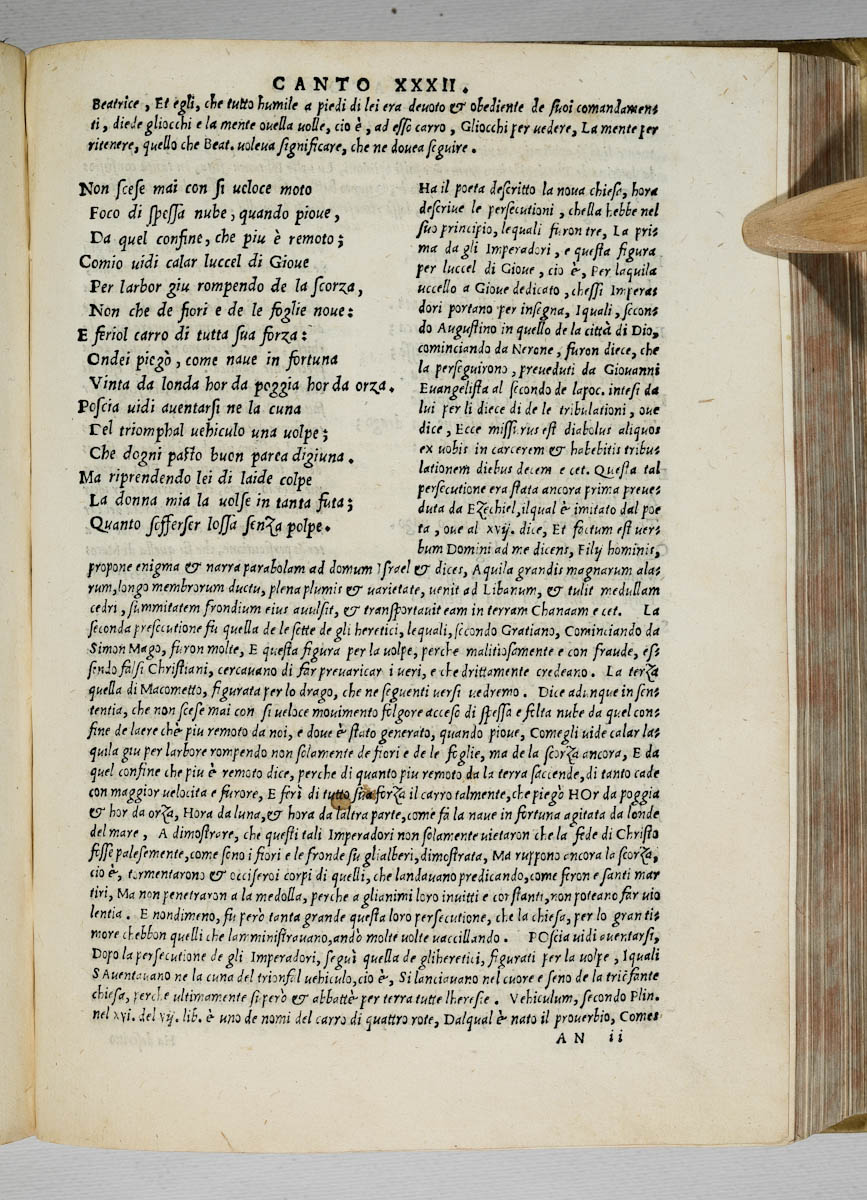 CANTO XXXII.
Beatrice, Et egli, che tutto humile a piedi di lei era deuoto & obediente de suoi comandamen=
ti, diede gliocchi e la mente ouella uolle, cio è, ad esso carro, Gliocchi per uedere, La mente per
ritenere, quello che Beat. uoleua significare, che ne douea seguire.
Non scese mai con si ueloce moto
Foco di spessa nube, quando pioue,
Da quel confine, che piu è remoto;
Comio uidi calar luccel di Gioue
Per larbor giu rompendo de la scorza,
Non che de fiori e de le foglie noue:
E feriol carro di tutta sua forza:
Ondei piegò, come naue in fortuna
Vinta da londa hor da poggia hor da orza.
Poscia uidi auentarsi ne la cuna
Del triomphal uehiculo una uolpe;
Che dogni pasto buon parea digiuna.
Ma riprendendo lei di laide colpe
La donna mia la uolse in tanta futa;
Quanto sofferser lossa senza polpe.
Ha il poeta descritto la noua chiesa, hora
descriue le persecutioni, chella hebbe nel
suo principio, lequali furon tre, La pri=
ma da gli Imperadori, e questa figura
per luccel di Gioue, cio è, Per laquila
uccello a Gioue dedicato, chessi Impera=
dori portano per insegna, Iquali, secon=
do Augustino in quello de la città di Dio,
cominciando da Nerone, furon diece, che
la perseguirono, preueduti da Giouanni
Euangelista al secondo de lapoc. intesi da
lui per li diece di de le tribulationi, oue
dice, Ecce missurus est diabolus aliquos
ex uobis in carcerem & habebitis tribu=
lationem diebus decem e cet. Questa tal
persecutione era stata ancora prima preue=
duta da Ezechiel, ilqual è imitato dal poe
ta, oue al xvij. dice, Et factum est uer=
bum Domini ad me dicens, Filij hominis,
propone enigma & narra parabolam ad domum Israel & dices, Aquila grandis magnarum ala=
rum, longo membrorum ductu, plena plumis & uarietate, uenit ad Libanum, & tulit medullam
cedri, summitatem frondium eius auulsit, & transportauit eam in terram Chanaam e cet. La
seconda presecutione fu quella de le sette de gli heretici, lequali, secondo Gratiano, Cominciando da
Simon Mago, furon molte, E questa figura per la uolpe, perche malitiosamente e con fraude, es=
sendo falsi Christiani, cercauano di far preuaricar i ueri, e che drittamente credeano. La terza
quella di Macometto, figurata per lo drago, che ne seguenti uersi uedremo. Dice adunque in sen=
tentia, che non scese mai con si ueloce mouimento folgore acceso di spessa e folta nube da quel con=
fine de laere che piu remoto da noi, e doue è stato generato, quando pioue, Comegli uide calar la=
quila giu per larbore rompendo non solamente de fiori e de le foglie, ma de la scorza ancora, E da
quel confine che piu è remoto dice, perche di quanto piu remoto da la terra saccende, di tanto cade
con maggior uelocita e furore, E ferì di tutto sua forza il carro talmente, che piegò HOr da poggia
& hor da orza, Hora da luna, & hora da laltra parte, come fa la naue in fortuna agitata da londe
del mare, A dimostrare, che questi tali Imperadori non solamente uietaron che la fede di Christo
fosse palesemente, come sono i fiori e le fronde su glialberi, dimostrata, Ma ruppono ancora la scorza,
cio è, tormentarono & occiseroi corpi di quelli, che landauano predicando, come feron e santi mar
tiri, Ma non penetraron a la medolla, perche a glianimi loro inuitti e constanti, non poteano far uio
lentia. E nondimeno, fu però tanta grande questa loro persecutione, che la chiesa, per lo gran ti=
more chebbon quelli che lamministrauano, andò molte uolte uaccillando. POscia uidi auentarsi,
Dopo la persecutione de gli Imperadori, seguì quella de gliheretici, figurati per la uolpe, Iquali
S Auentauano ne la cuna del trionfal uehiculo, cio è, Si lanciauano nel cuore e seno de la triõfante
chiesa, perche ultimamente si però & abbattè per terra tutte lheresie. Vehiculum, secondo Plin.
nel xvi. del vij. lib. è uno de nomi del carro di quattro rote, Dalqual è nato il prouerbio, Comes
AN ii